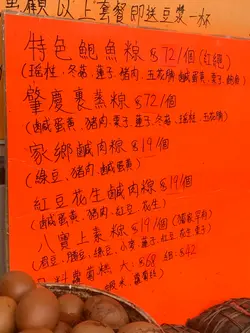 惠顧以上套餐即送豆漿一杯
特色鮑魚粽 $72/個(紅繩)
(瑤柱、冬菇、蓮子、豬肉、五花腩、鹹蛋黃、栗子、鮑魚)
肇慶裹蒸粽 $72/個
(鹹蛋黃、豬肉、栗子、蓮子、冬菇、瑤柱、五花腩)
家鄉鹹肉粽 $19/個
(綠豆、豬肉、鹹蛋黃)
紅豆花生鹹肉粽 $19/個
(鹹蛋黃、豬肉、紅豆、花生)
八寶上素粽 $19/個
(眉豆、腰豆、綠豆、小麥、蓮子、紅豆、花生、栗子)
料蘿蔔糕 大:$68 細:$42
蝦米